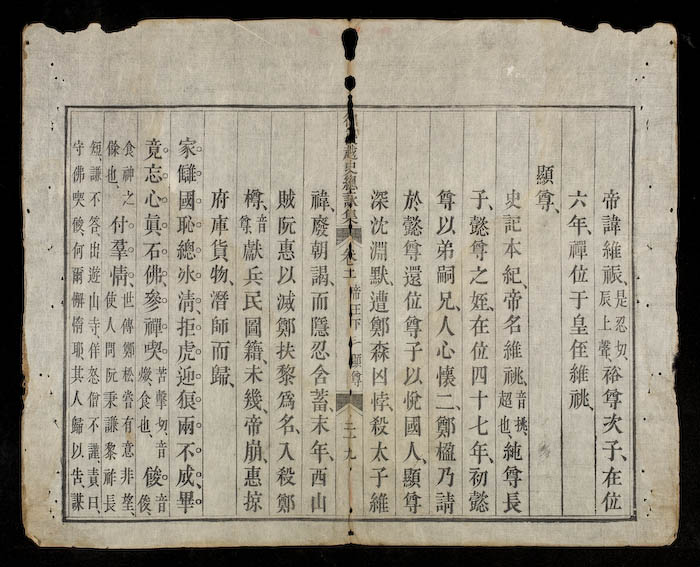 帝諱維祳、是忍切、辰上聲、裕尊次子、在位
六年、禪位于皇侄維祧、
顯尊、
史記本紀、帝名維祧、音挑、超也、純尊長
子、懿尊之姪、在位四十七年、初懿
尊以弟嗣兄、人心懷二、鄭楹乃請
於懿尊還位尊子以悅國人、顯尊
深沈淵默、遭鄭森凶悖、殺太子維
越史總詠集 卷之二 帝王下 顯尊 二十九
禕、廢朝謁、而隱忍含蓄、末年、西山
賊阮惠以滅鄭扶黎爲名、入殺鄭
樽、音尊、獻兵民圖籍、未幾、帝崩、惠掠
府庫貨物、潛師而歸、
家讎國恥總氷清、拒虎迎狼兩不成、畢
竟忘心眞石佛、參禪喫苦擊切、音食也、餕音俊、
食神之餘也、付羣情、世傳鄭松嘗有意非望、使人問阮秉謙黎祚長
短、謙不答、出遊山寺佯怒僧不謹責曰、
守佛喫餕、何爾懈惰、其人歸以告謀